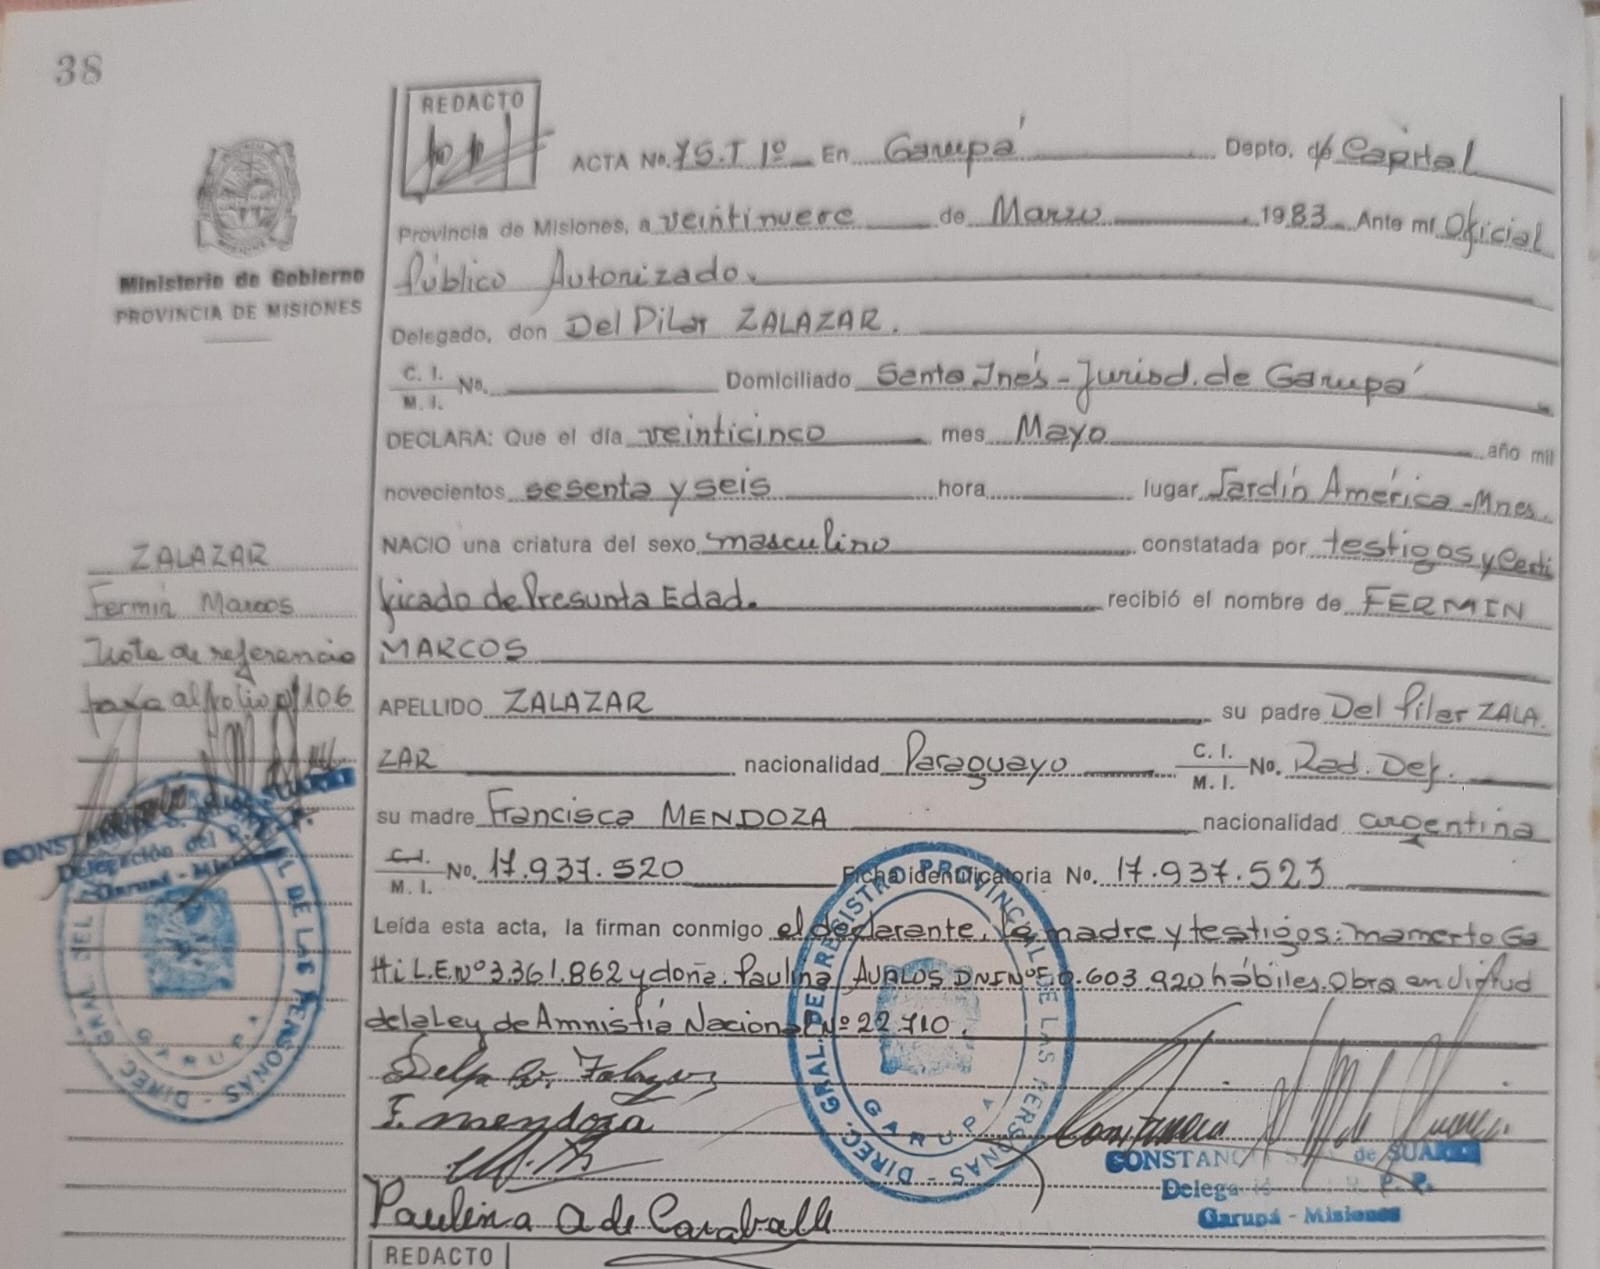 38
REDACTO
ACTA No. 75.T 1º En Garupá Depto. de Capital
Provincia de Misiones, a veintinueve de Marzo 1983 Ante mi Oficial
Público Autorizado.
Delegado, don Del Pilar ZALAZAR.
C. I.
M. I. No. Domiciliado Santa Inés - Jurisd. de Garupá
DECLARA: Que el día veinticinco mes Mayo año mil
novecientos sesenta y seis hora lugar Jardín América - Mnes.
NACIO una criatura del sexo masculino constatada por testigos y Certi
ficado de Presunta Edad. recibió el nombre de FERMIN
MARCOS
APELLIDO ZALAZAR su padre Del Pilar ZALA
ZAR nacionalidad Paraguayo C. I. M. I. No. Rad. Def.
su madre Francisca MENDOZA nacionalidad argentina
C. I. M. I. No. 17.937.520 Ficha identificatoria No. 17.937.523
Leída esta acta, la firman conmigo el declarante, la madre y testigos: Mamerto Ga
Hi L.E.Nº 3.361.862 y doña Paulina AVALOS DNI Nº 603.920 hábiles. Obra en virtud
de la Ley de Amnistía Nacional Nº 22.710.
F. Mendoza
Paulina A de Caraballo
REDACTO
Ministerio de Gobierno
PROVINCIA DE MISIONES
ZALAZAR
Fermín Marcos
Nota de referencia
pasa al folio nº 106
CONSTANCIA de SUAREZ
Delegación del R. P. P.
Garupá - Misiones
DIREC. GRAL. DEL REGISTRO PROVINCIAL DE LAS PERSONAS
GARUPA
CONSTANCIA de SUAREZ
Delegación R. P. P.
Garupá - Misiones